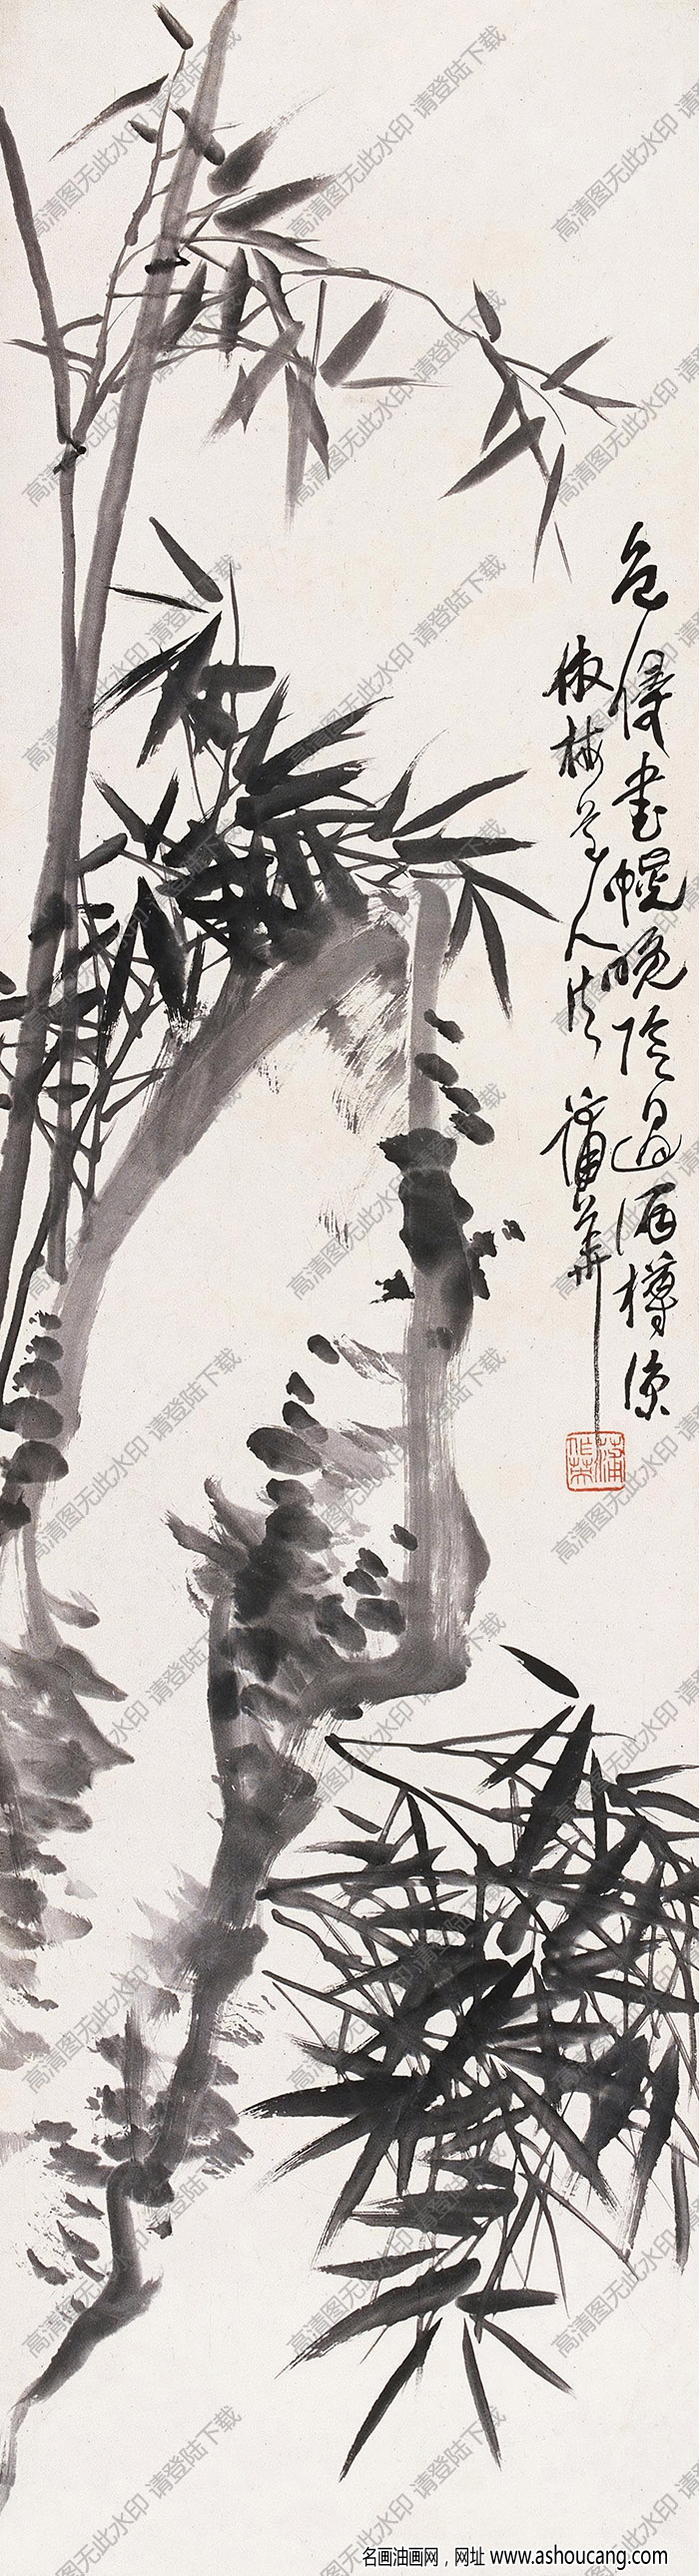 色侵書幌晚陰過酒樽涼
道人法 蒲華
蒲作英
高清图无此水印 请登陆下载
名画油画网，网址 www.ashoucang.com